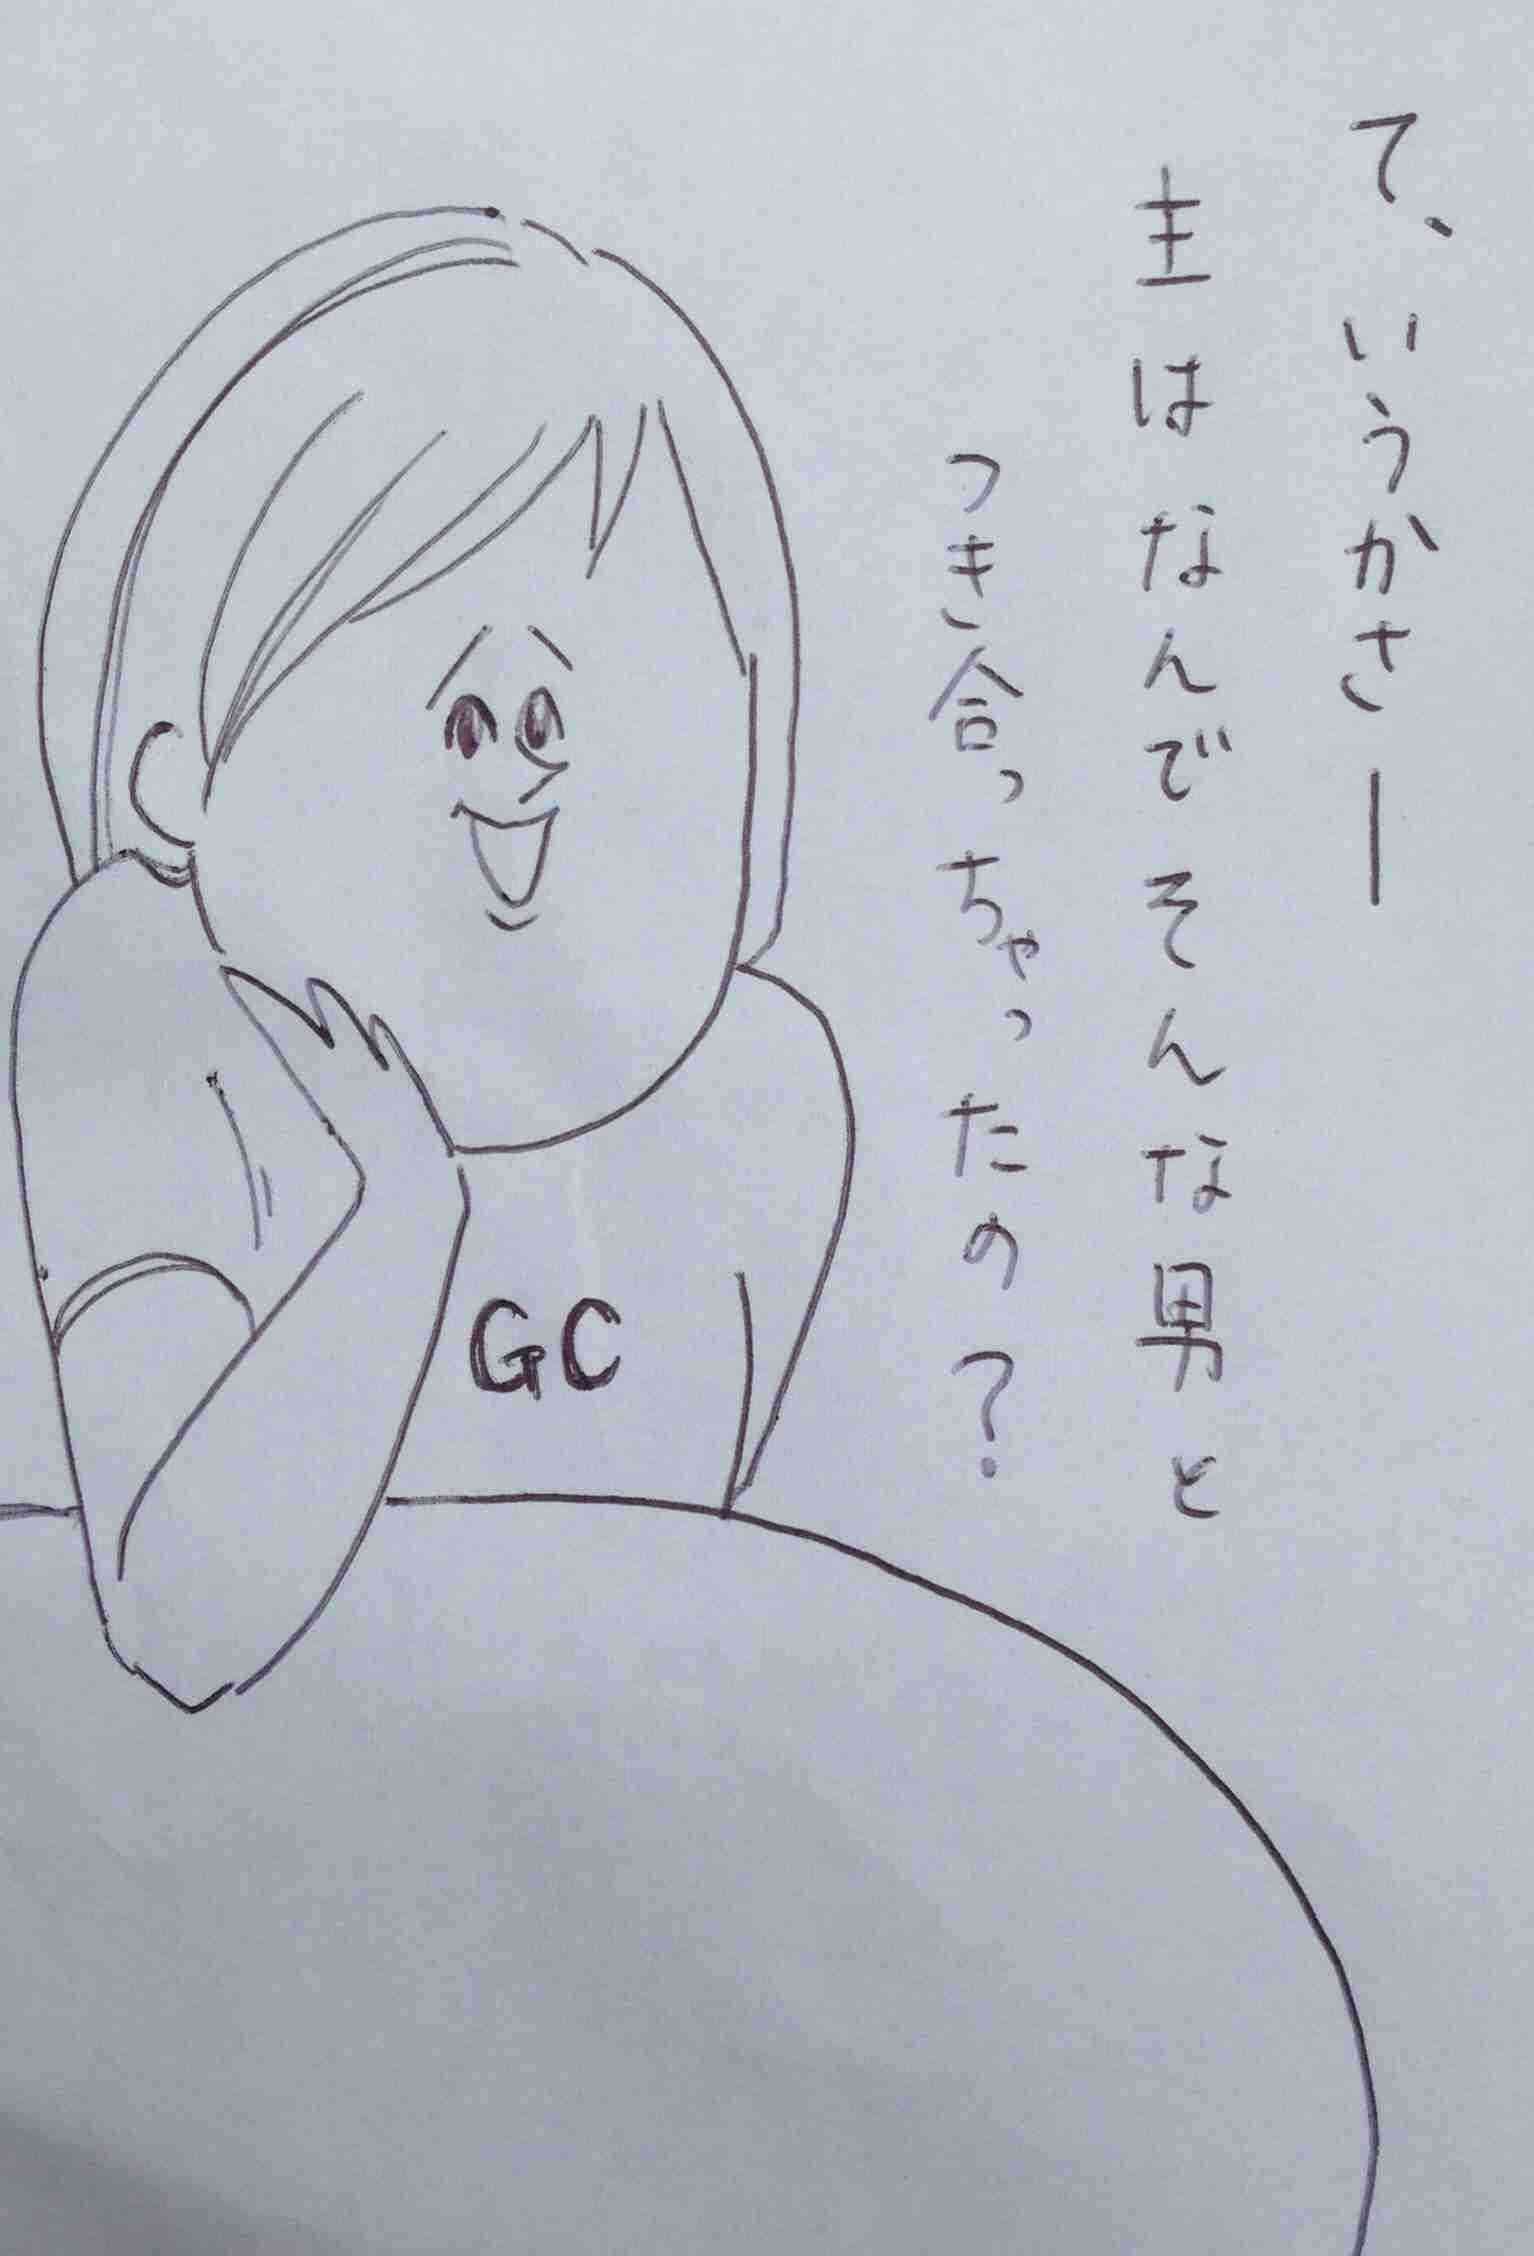 て、いうかさー
主はなんでそんな男と
つき合っちゃったの？
GC